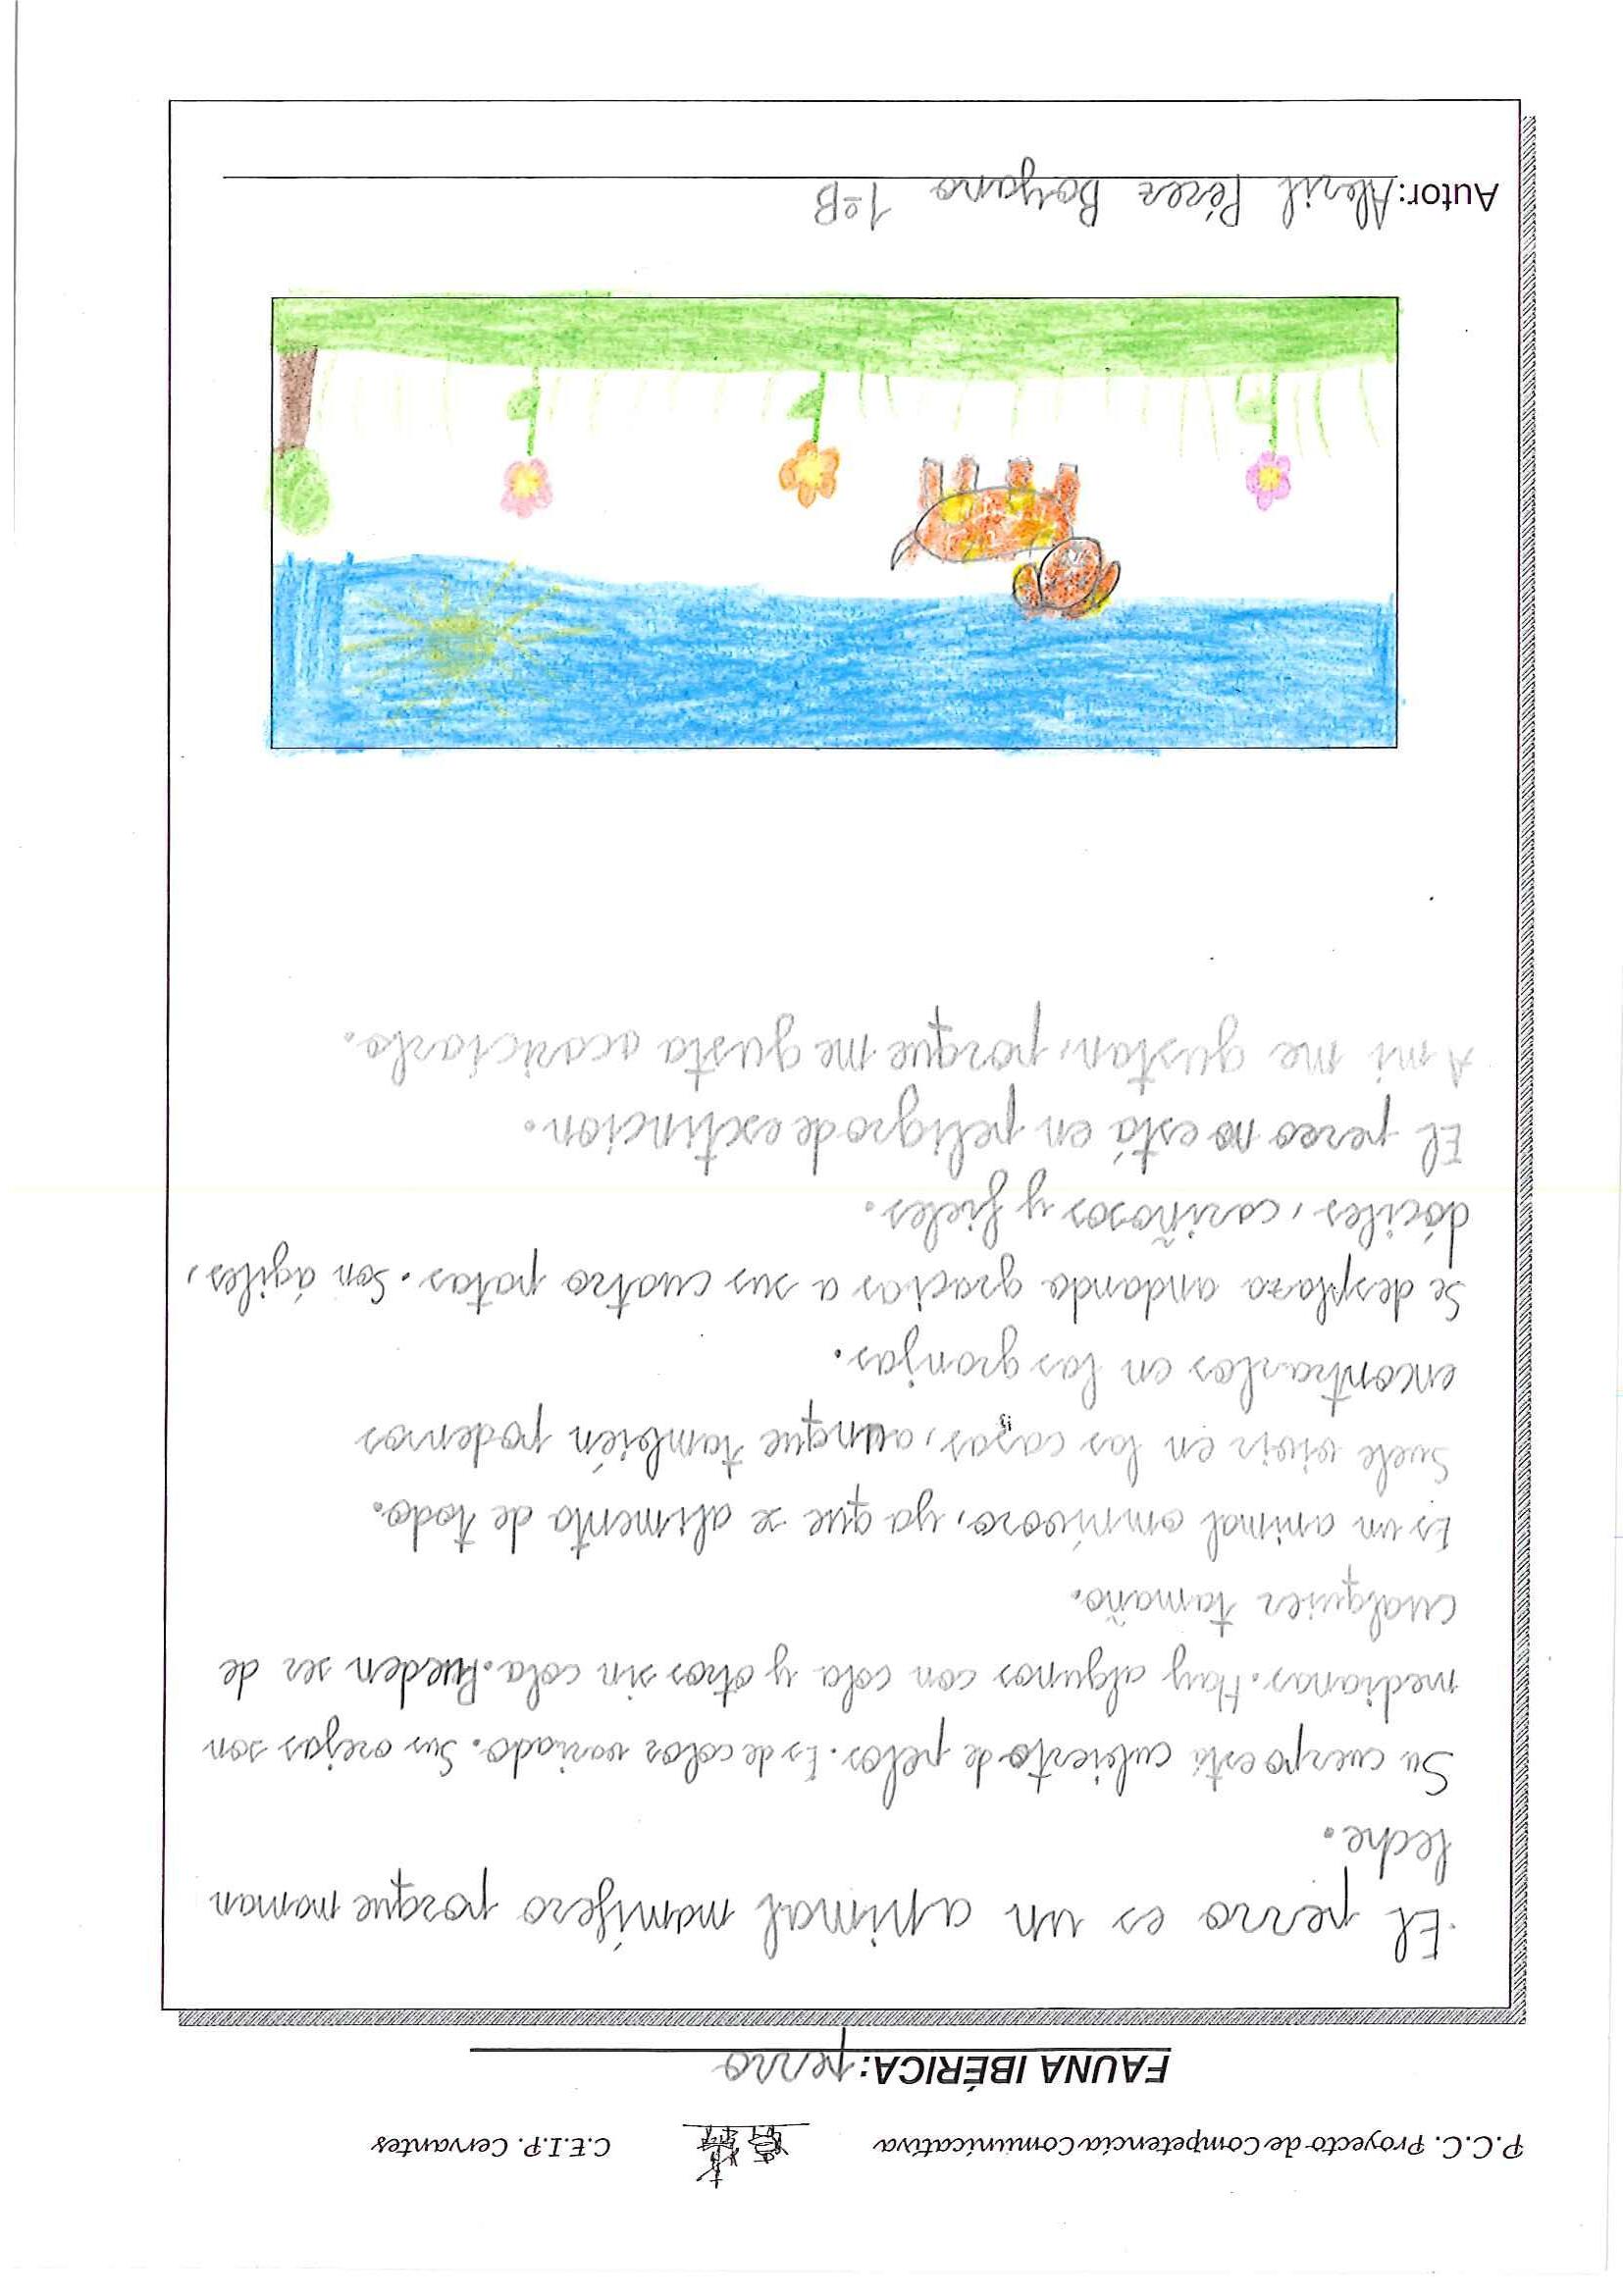 P.C.C. Proyecto de Competencia Comunicativa C.E.I.P. Cervantes
FAUNA IBÉRICA: perro
El perro es un animal mamífero porque maman
leche.
Su cuerpo está cubierto de pelos. Es de color variado. Sus orejas son
medianas. Hay algunos con cola y otros sin cola. Pueden ser de
cualquier tamaño.
Es un animal omnívoro, ya que se alimenta de todo.
Suele vivir en las casas, aunque también podemos
encontrarlos en las granjas.
Se desplaza andando gracias a sus cuatro patas. Son ágiles,
dóciles, cariñosos y fieles.
El perro no está en peligro de extinción.
A mi me gustan, porque me gusta acariciarlo.
Autor: Abril Pérez 1ºB